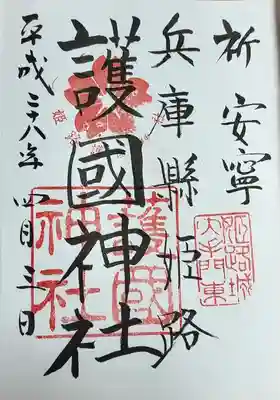 祈 安寧
兵庫縣姫路
護國神社
平成二十八年 四月三日
護國
神社
姫路城
大手門東